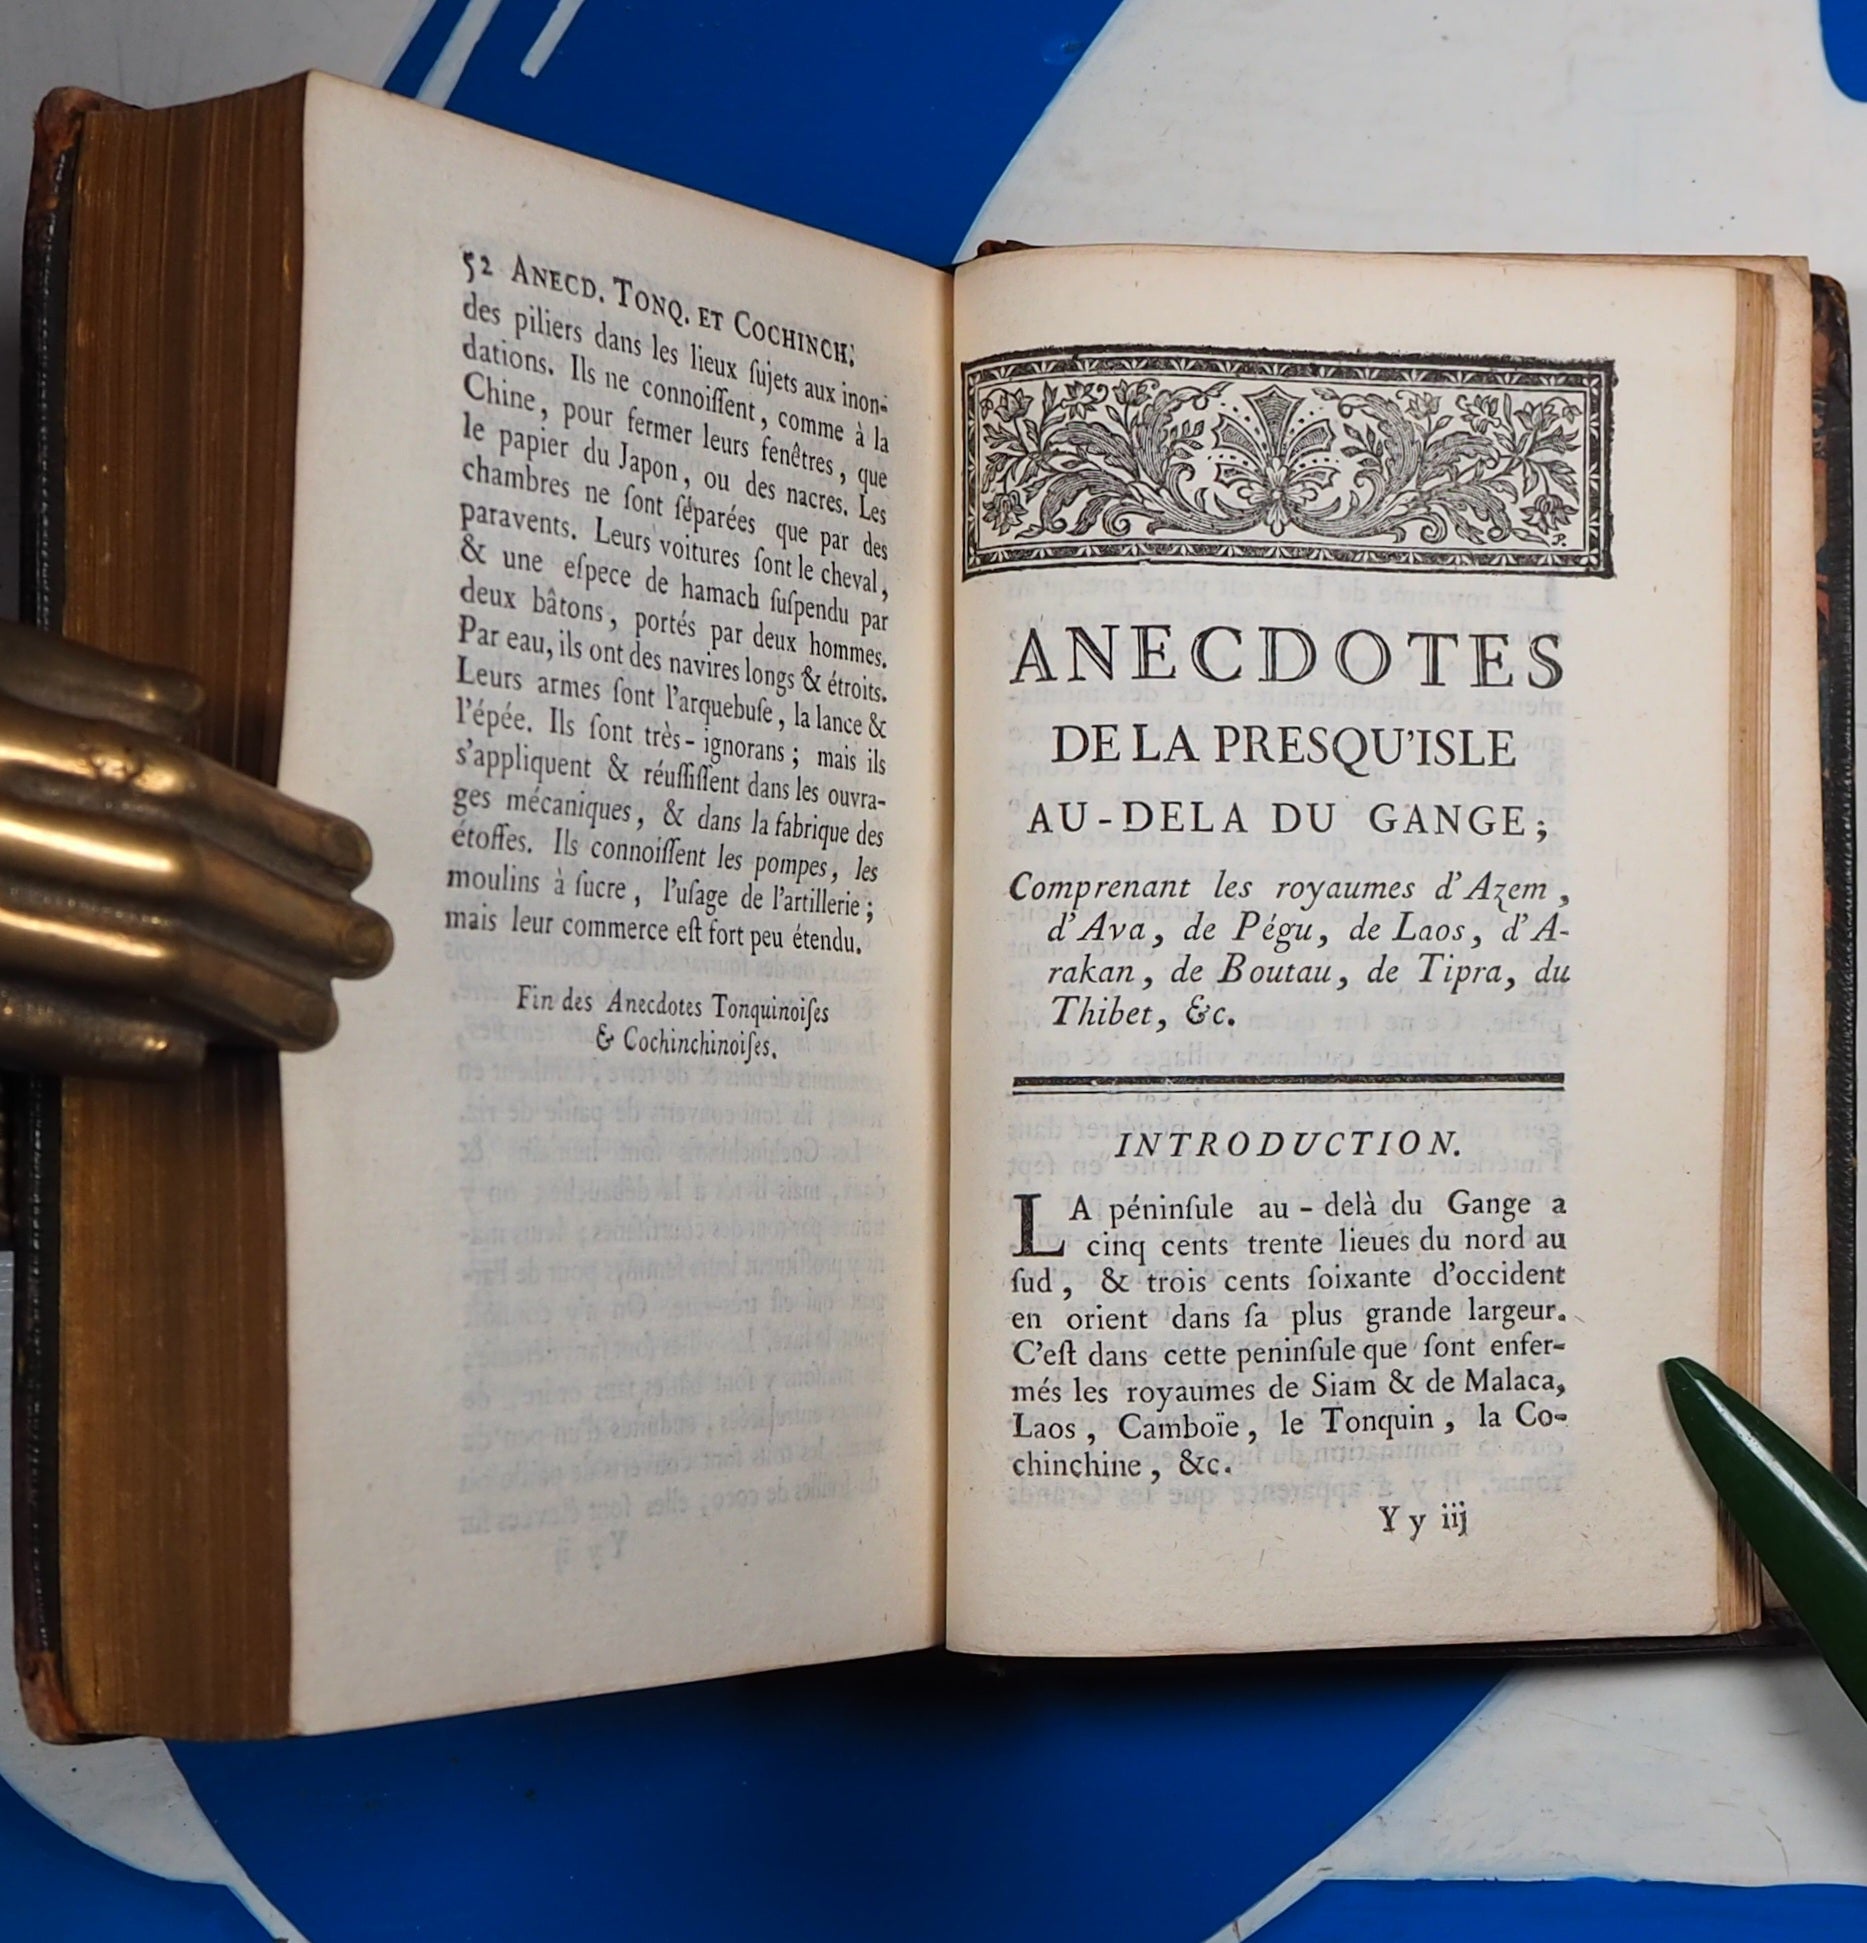 52 ANECD. TONQ. ET COCHINCH.
des piliers dans les lieux ſujets aux inon-
dations. Ils ne connoiſſent, comme à la
Chine, pour fermer leurs fenêtres, que
le papier du Japon, ou des nacres. Les
chambres ne ſont ſéparées que par des
paravents. Leurs voitures ſont le cheval,
& une eſpece de hamach ſuſpendu par
deux bâtons, portés par deux hommes.
Par eau, ils ont des navires longs & étroits.
Leurs armes ſont l'arquebuſe, la lance &
l'épée. Ils ſont très-ignorans; mais ils
s'appliquent & réuſſiſſent dans les ouvra-
ges mécaniques, & dans la fabrique des
étoffes. Ils connoiſſent les pompes, les
moulins à ſucre, l'uſage de l'artillerie;
mais leur commerce eſt fort peu étendu.
Fin des Anecdotes Tonquinoiſes
& Cochinchinoiſes.
P.
ANECDOTES
DE LA PRESQU'ISLE
AU-DELA DU GANGE;
Comprenant les royaumes d'Azem,
d'Ava, de Pégu, de Laos, d'A-
rakan, de Boutau, de Tipra, du
Thibet, &c.
INTRODUCTION.
LA péninſule au-delà du Gange a
cinq cents trente lieues du nord au
ſud, & trois cents ſoixante d'occident
en orient dans ſa plus grande largeur.
C'eſt dans cette peninſule que ſont enfer-
més les royaumes de Siam & de Malaca,
Laos, Camboïe, le Tonquin, la Co-
chinchine, &c.
Y y iij